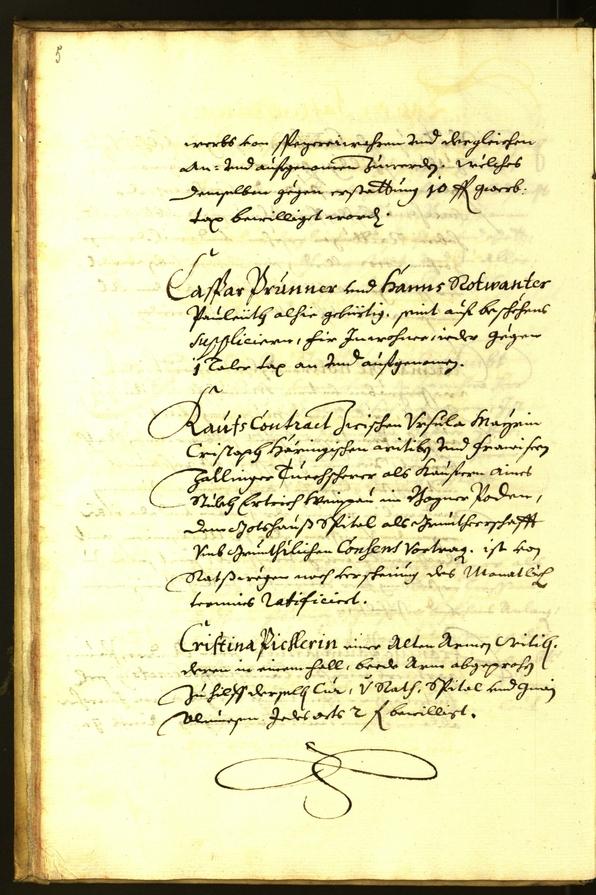 5
werbs von Spezereiwahren und dergleichen
an- und aufgenomen zuwerden. welches
demselben gegen erstattung 10 fl gwerb-
tax bewilliget worden.
Caspar Prünner und Hanns Rotwanter
Paulerisch alhie gebürtig, seint auf beschehens
Suppliciern, für Inwohner, ieder gegen
1 Taler tax an und aufgenomen.
Kaufs Contract Zwischen Ursula Mayrin
Cristoph Häringischen witibn und Francisen
Zallinger Tuechscherer als Käuffern aines
Stückh Ertreich Weingau im Pozner Poden,
dem Gotshauß Spital als Grundtherrschafft
Umb Grundthrlichen Consens Vortrag. ist von
Ratswegen noch vor scheinung des Monatlich
termins Ratificiert.
Cristina Picklerin einer Alten Armen Witib,
deren in einem fall, beede Arm abgeprochen
Zu hilff derselben Cur, Rath, Spital und gmain
Almuesen Jedes orts 2 fl bewilligt.